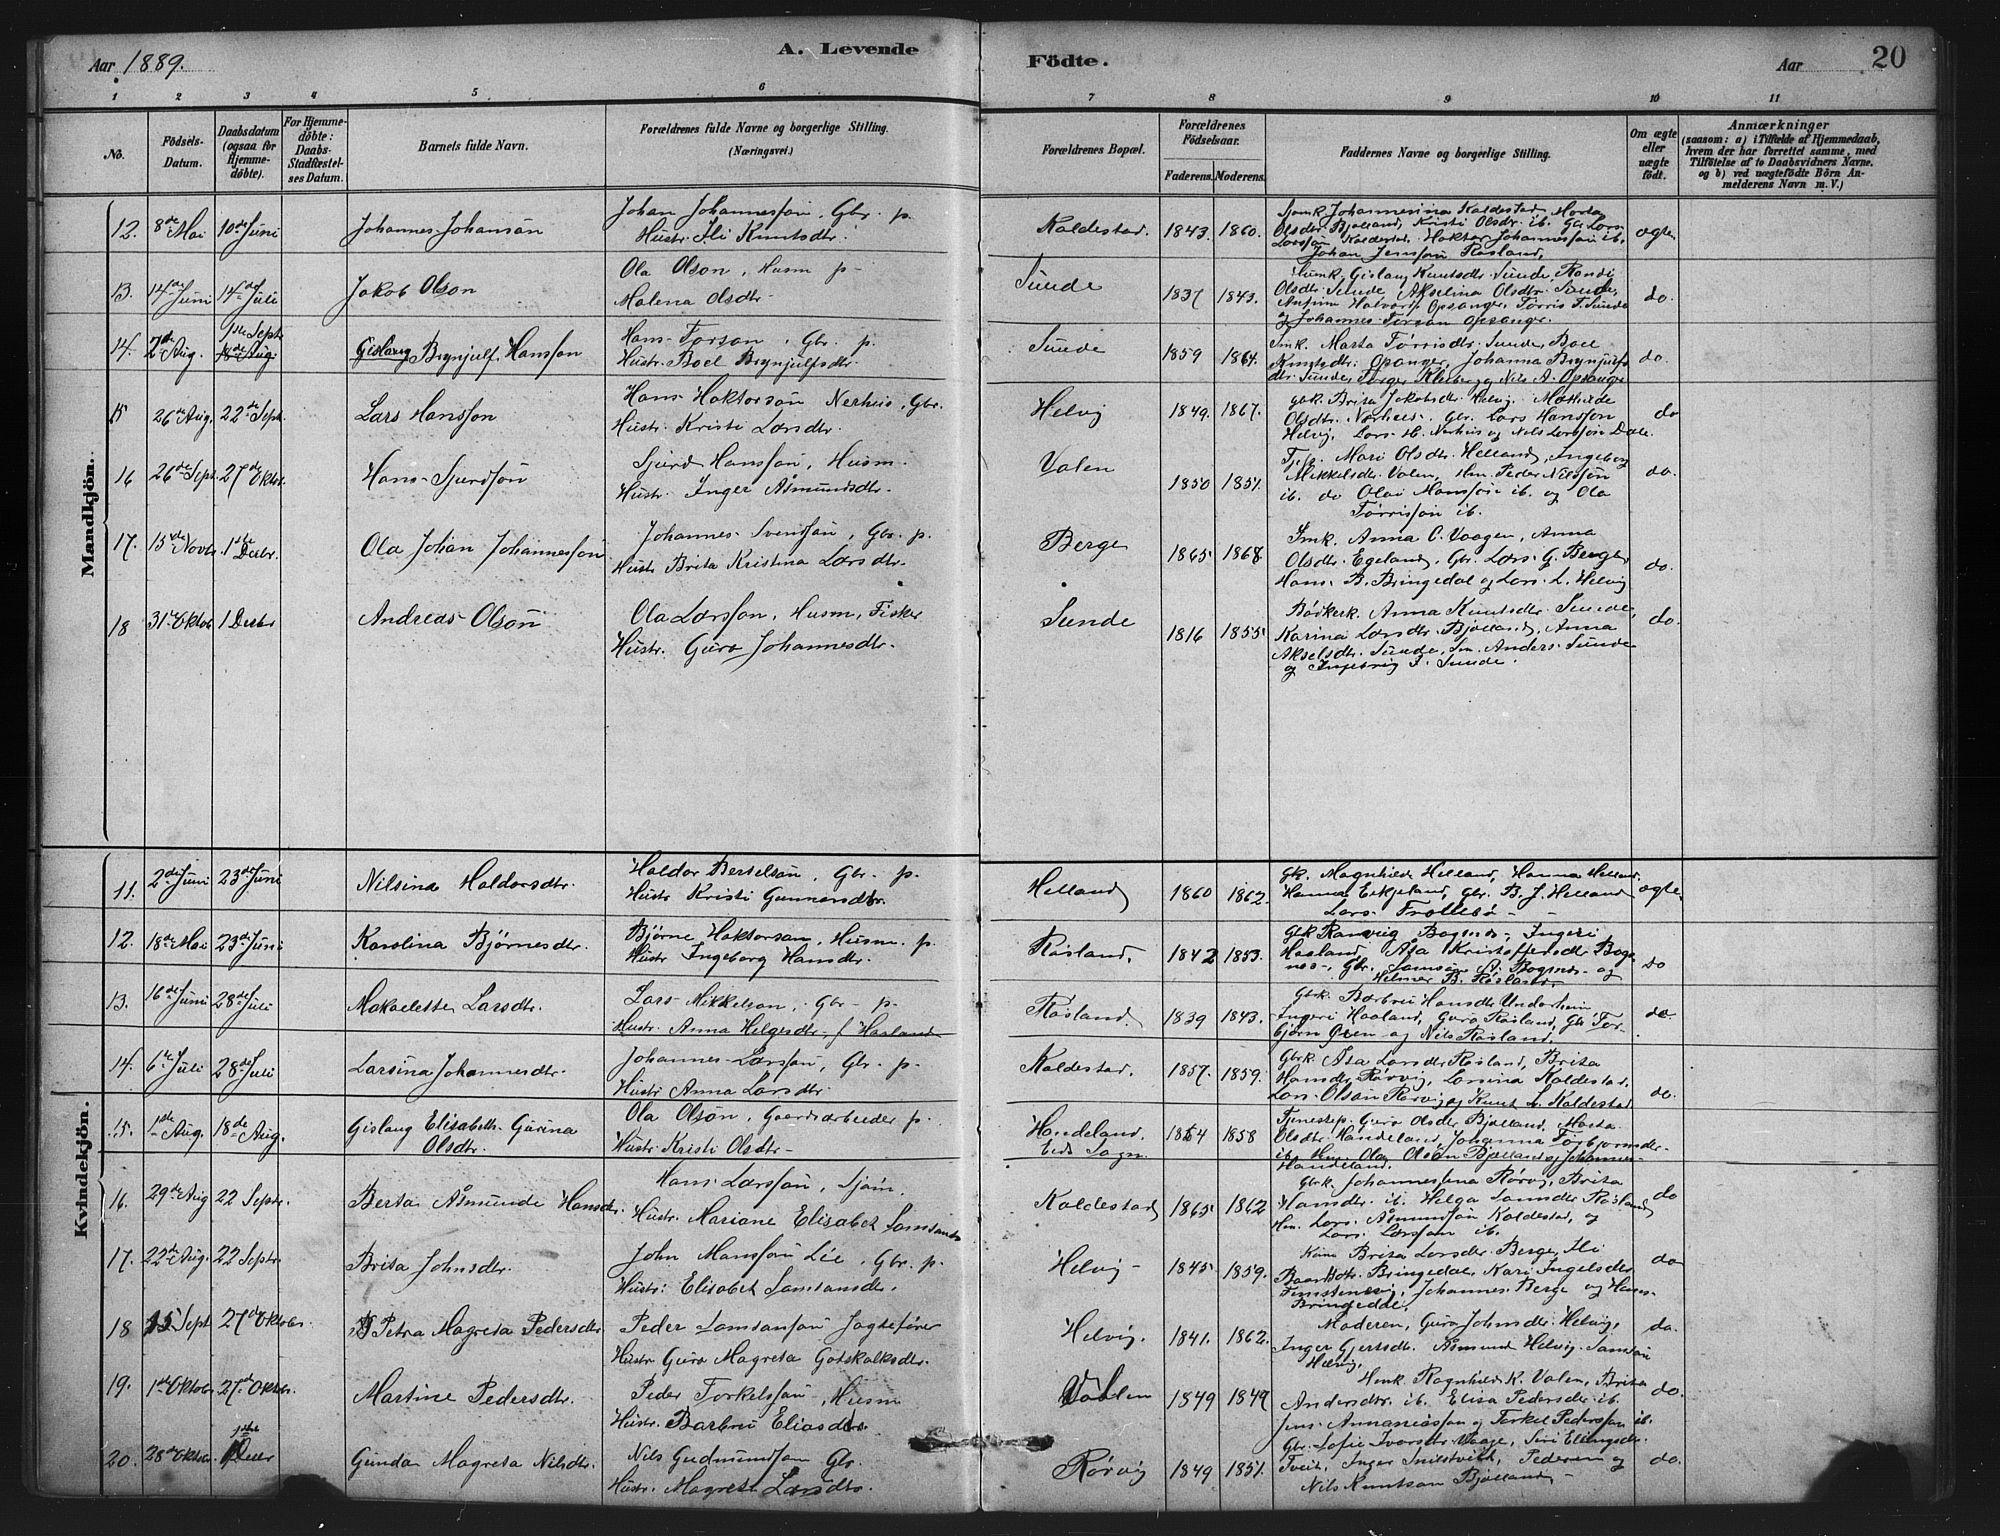 Aar 1889.
A. Levende
Födte.
Aar
20
1 2 3 4 5 6 7 8 9 10 11
No.
Födsels-Datum.
Daabsdatum (ogsaa for Hjemme-döbte).
For Hjemme-döbte: Daabs-Stadfæstel-ses Datum.
Barnets fulde Navn.
Forældrenes fulde Navne og borgerlige Stilling. (Næringsvei.)
Forældrenes Bopæl.
Forældrenes Födselsaar.
Faderens. Moderens.
Faddernes Navne og borgerlige Stilling.
Om ægte eller uægte födt.
Anmærkninger
(saasom: a) i Tilfælde af Hjemmedaab, hvem der har forrettet samme, med Tilföielse af to Daabsvidners Navne, og b) ved uægtefödte Börn An-melderens Navn m. V.)
Mandkjön.
12. 8de Mai 10de Juni Johannes Johanson
Johan Johannesson, Gbr. p.
Hustr. Ili Knutsdtr.
Kaldestad. 1843. 1860.
Olsdtr. Bjelland, Kristi Olsdtr. ib. Gbr. Lars
Larsson Kaldestad. Haktor Johannesson ib.
Johan Jensson Røsland,
ægte
13. 14de Juni 14de Juli Jakob Olson
Ola Olson, Husm p-
Malena Olsdtr-
Sunde 1837 1843.
Gislaug Knutsdtr. Sunde, Randi
Olsdtr. Sunde, Akselina Olsdtr. Sunde,
Opsanger, Tørris T. Sunde
og Johannes Torson Opsanger.
do.
14. 2de Aug. 1ste Septr 18de Aug. Gislaug Brynjulf Hansson
Hans Torson, Gbr. p.
Hustr. Boel Brynjulfsdtr.
Sunde 1859 1864.
Smk. Marta Tørrisdtr. Sunde, Boel
Knutsdtr. Opsanger, Johanna Brynjulfs
dtr. Sunde, og Nils A. Opsanger
do.
15 26de Aug. 22de Sept. Lars Hansson
Hans Haktorson Nerhus, Gbr.
Hustr. Kristi Larsdtr.
Helvig 1849. 1867.
Gbk. Brita Jakobsdtr. Helvig, Mathilde
Olsdtr. Nerhus. Gbr. Lars Hansson
Helvig, Lars H. Nerhus og Nils Larsson Dale.
do
16 26de Sept. 27de Oktbr. Hans Sjurdson
Sjurd Hansson, Husm.
Hustr. Inger Åsmundsdtr.
Valen 1850 1851.
Tjp. Mari Olsdtr. Helland, Ingeborg
Mikkelsdtr. Valen, Hm Peder Nilsson
ib. do Olai Hansson ib. og Ola
Tørrisson ib.
do.
17. 15de Novbr. 1ste Decbr. Ola Johan Johannesson
Johannes Svendson, Gbr. p.
Hustr Brita Kristina Larsdtr.
Berge 1865 1868
Smk. Anna O. Vaagen, Anna
Olsdtr. Egeland, Gbr. Lars G. Berge,
Hans B. Bringedal og Lars L. Helvig
do.
18 31te Oktob 1 Decbr Andreas Olson
Ola Larsson, Husm, Fisker
Hustr. Guro Johannesdtr.
Sunde 1816 1855
Bødkerk. Anna Knutsdtr. Sunde,
Karina Larsdtr. Bjelland, Anna
Akselsdtr. Sunde, Sm. Anders Sunde
og Ingebrig T. Sunde.
do.
Kvindekjön.
11. 2de Juni 23de Juni Nilsina Haldorsdtr.
Haldor Bertelson, Gbr. p.
Hustr Kristi Gunnarsdtr.
Helland 1860 1862.
Gk. Magnhild Helland, Hanna Helland,
Hanna Eikjeland, Gbr. B. J. Helland
Lars Trollebø -
ægte
12. 18de Mai 23de Juni Karolina Bjørnesdtr.
Bjørne Haktorson, Husm. p.
Hustr Ingeborg Hansdtr.
Røsland, 1842 1853.
Gbk Ranveig Bognøs, Ingeri
Haaland, Åsa Kristoffersdtr Bog-
nøs, Gbr. Samson A. Bognøs og
Helmer B. Røsland
do
13. 16de Juni 28de Juli Makaelette Larsdtr.
Lars Mikkelson, Gbr p.
Hustr. Anna Helgesdtr, f Haaland
Røsland. 1839 1843.
Gbrk. Barbru Hansdtr Underheim
Ingeri Haaland, Guro Røsland, Gbr Tor-
bjørn Øxen og Nils Røsland.
do.
14. 6te Juli 28de Juli Larsina Johannesdtr.
Johannes Larsson, Gbr. p.
Hustr Anna Larsdtr
Kaldestad. 1857. 1859.
Gbrk. Åsa Larsdtr Røsland, Brita
Hansdtr Rørvig, Larsina Kaldestad,
Lars Olson Rørvig og Knut L. Kaldestad
do.
15. 1ste Aug. 18de Aug. Gislaug Elisabeth Gurina
Olsdtr.
Ola Olson, Gaardsarbeider p.
Hustr. Kristi Olsdtr-
Handeland. Eids Sogn. 1864 1858
Tjenestep. Guro Olsdtr Bjelland, Marta
Olsdtr. Handeland, Johanna Torbjørnsdtr
ib Hm. Ola Olson Bjelland og Johannes
Handeland.
16. 29de Aug 22 Septr. Berta Åsmunde Hansdtr.
Hans Larsson, Sjøm.
Hustr. Mariane Elisabet Samsonsdtr
Kaldestad 1865 1862
Gbrk. Johannessina Rørvig, Brita
Hansdtr. ib. Helga Samsdtr Røsland
Hm. Lars Åsmundson Kaldestad, og
Lars Larsson ib.
do
17. 22de Aug. 22 Septr. Brita Johnsdtr.
John Mansson Lie, Gbr. p.
Hustr: Elisabet Samsonsdtr.
Helvig - 1845 1859.
Brita Larsdtr. Berge, Ili
Baardsdtr. Bringedal, Kari Ingelsdtr
Johannes Berge og Hans
Bringedal.
do
18 15 Sept 27de Oktobr. Petra Magreta Pedersdtr
Peder Samsonson Jagtefører
Hustr Guro Magreta Gotskalksdtr.
Helvig. 1841. 1862.
Moderen, Guro Johnsdtr. Helvig,
Inger Gjertsdtr. Åsmund Helvig Samson
Helvig.
do.
19. 1ste Oktobr 27de Oktbr. Martine Pedersdtr.
Peder Torkelsson, Husm
Hustr. Barbru Eliasdtr.
Valen 1849 1849
Ragnhild K. Valen, Brita
Andersdtr. ib. Elisa Pedersdtr ib.
Jens Ananiasson og Torkel Pedersson ib.
do.
20. 28de Oktobr. 1ste Decbr Gunda Magreta Nilsdtr.
Nils Gudmundson Gbr.
Hustr. Magreta Larsdtr.
Rørvig 1849 1851.
Gbr. Sofie Ivarsdtr Vaage, Siri Ellingsdtr.
Tveit, Inger Snilstveit, Pederen og
Nils Knutson Bjelland -
do.